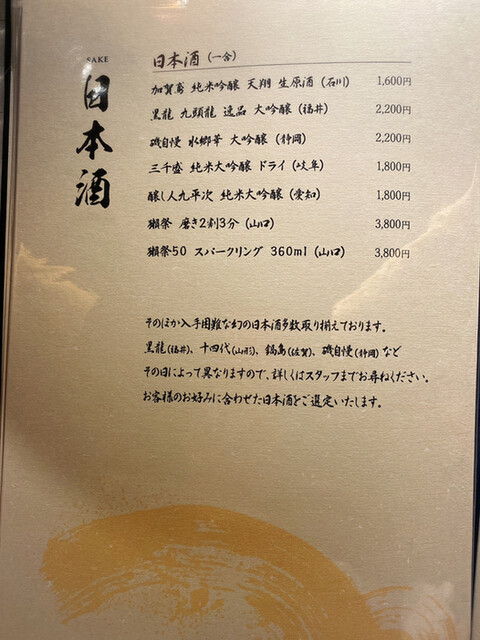 SAKE
日本酒
日本酒 (一合)
加賀鳶 純米吟醸 天翔 生原酒 (石川) 1,600円
黒龍 九頭龍 逸品 大吟醸 (福井) 2,200円
磯自慢 水郷華 大吟醸 (静岡) 2,200円
三千盛 純米大吟醸 ドライ (岐阜) 1,800円
醸し人九平次 純米大吟醸 (愛知) 1,800円
獺祭 磨き2割3分 (山口) 3,800円
獺祭50 スパークリング 360ml (山口) 3,800円
そのほか入手困難な幻の日本酒多数取り揃えております。
黒龍(福井)、十四代(山形)、鍋島(佐賀)、磯自慢(静岡) など
その日によって異なりますので、詳しくはスタッフまでお尋ねください。
お客様のお好みに合わせた日本酒をご選定いたします。